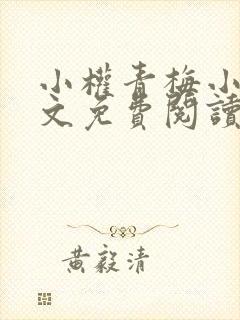 小權青梅小
文免費閱讀
黃毅清